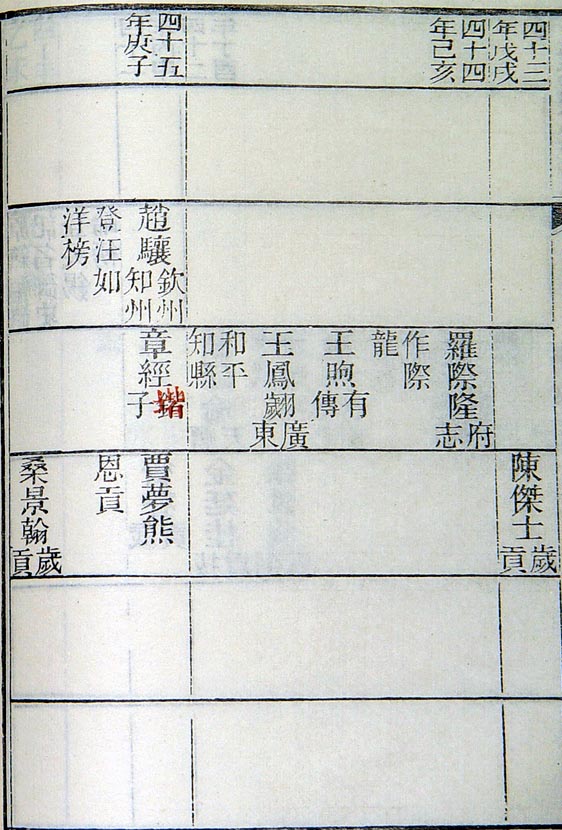 四十三
年戊戌
陳傑士
歲
貢
四十四
年己亥
羅際隆
府
志
作際
龍
王煦
有
傳
王鳳翽
廣
東
和平
知縣
四十五
年庚子
趙驤
欽州
知州
登汪如
洋榜
章經
子
賈夢熊
恩貢
桑景翰
歲
貢